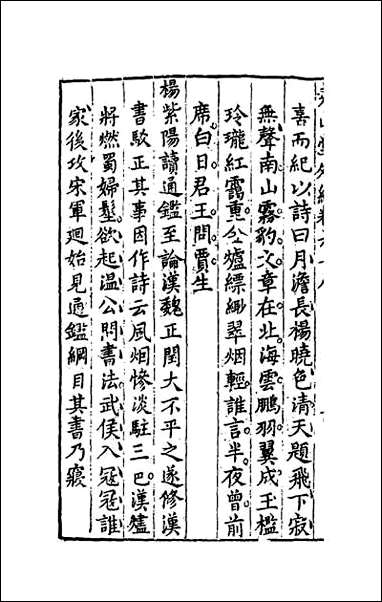 堯山堂外紀卷六十八
喜而紀以詩曰月澹長楊曉色清天題飛下寂
無聲南山霧豹文章在北海雲鵬羽翼成玉檻
玲瓏紅露重金爐縹緲翠烟輕誰言半夜曾前
席白日君王問賈生
楊紫陽讀通鑑至論漢魏正閏大不平之遂修漢
書駁正其事因作詩云風烟慘淡駐三巴漢燼
將燃蜀婦髽欲起温公問書法武侯入冦冦誰
家後攻宋軍迴始見通鑑綱目其書乃寢